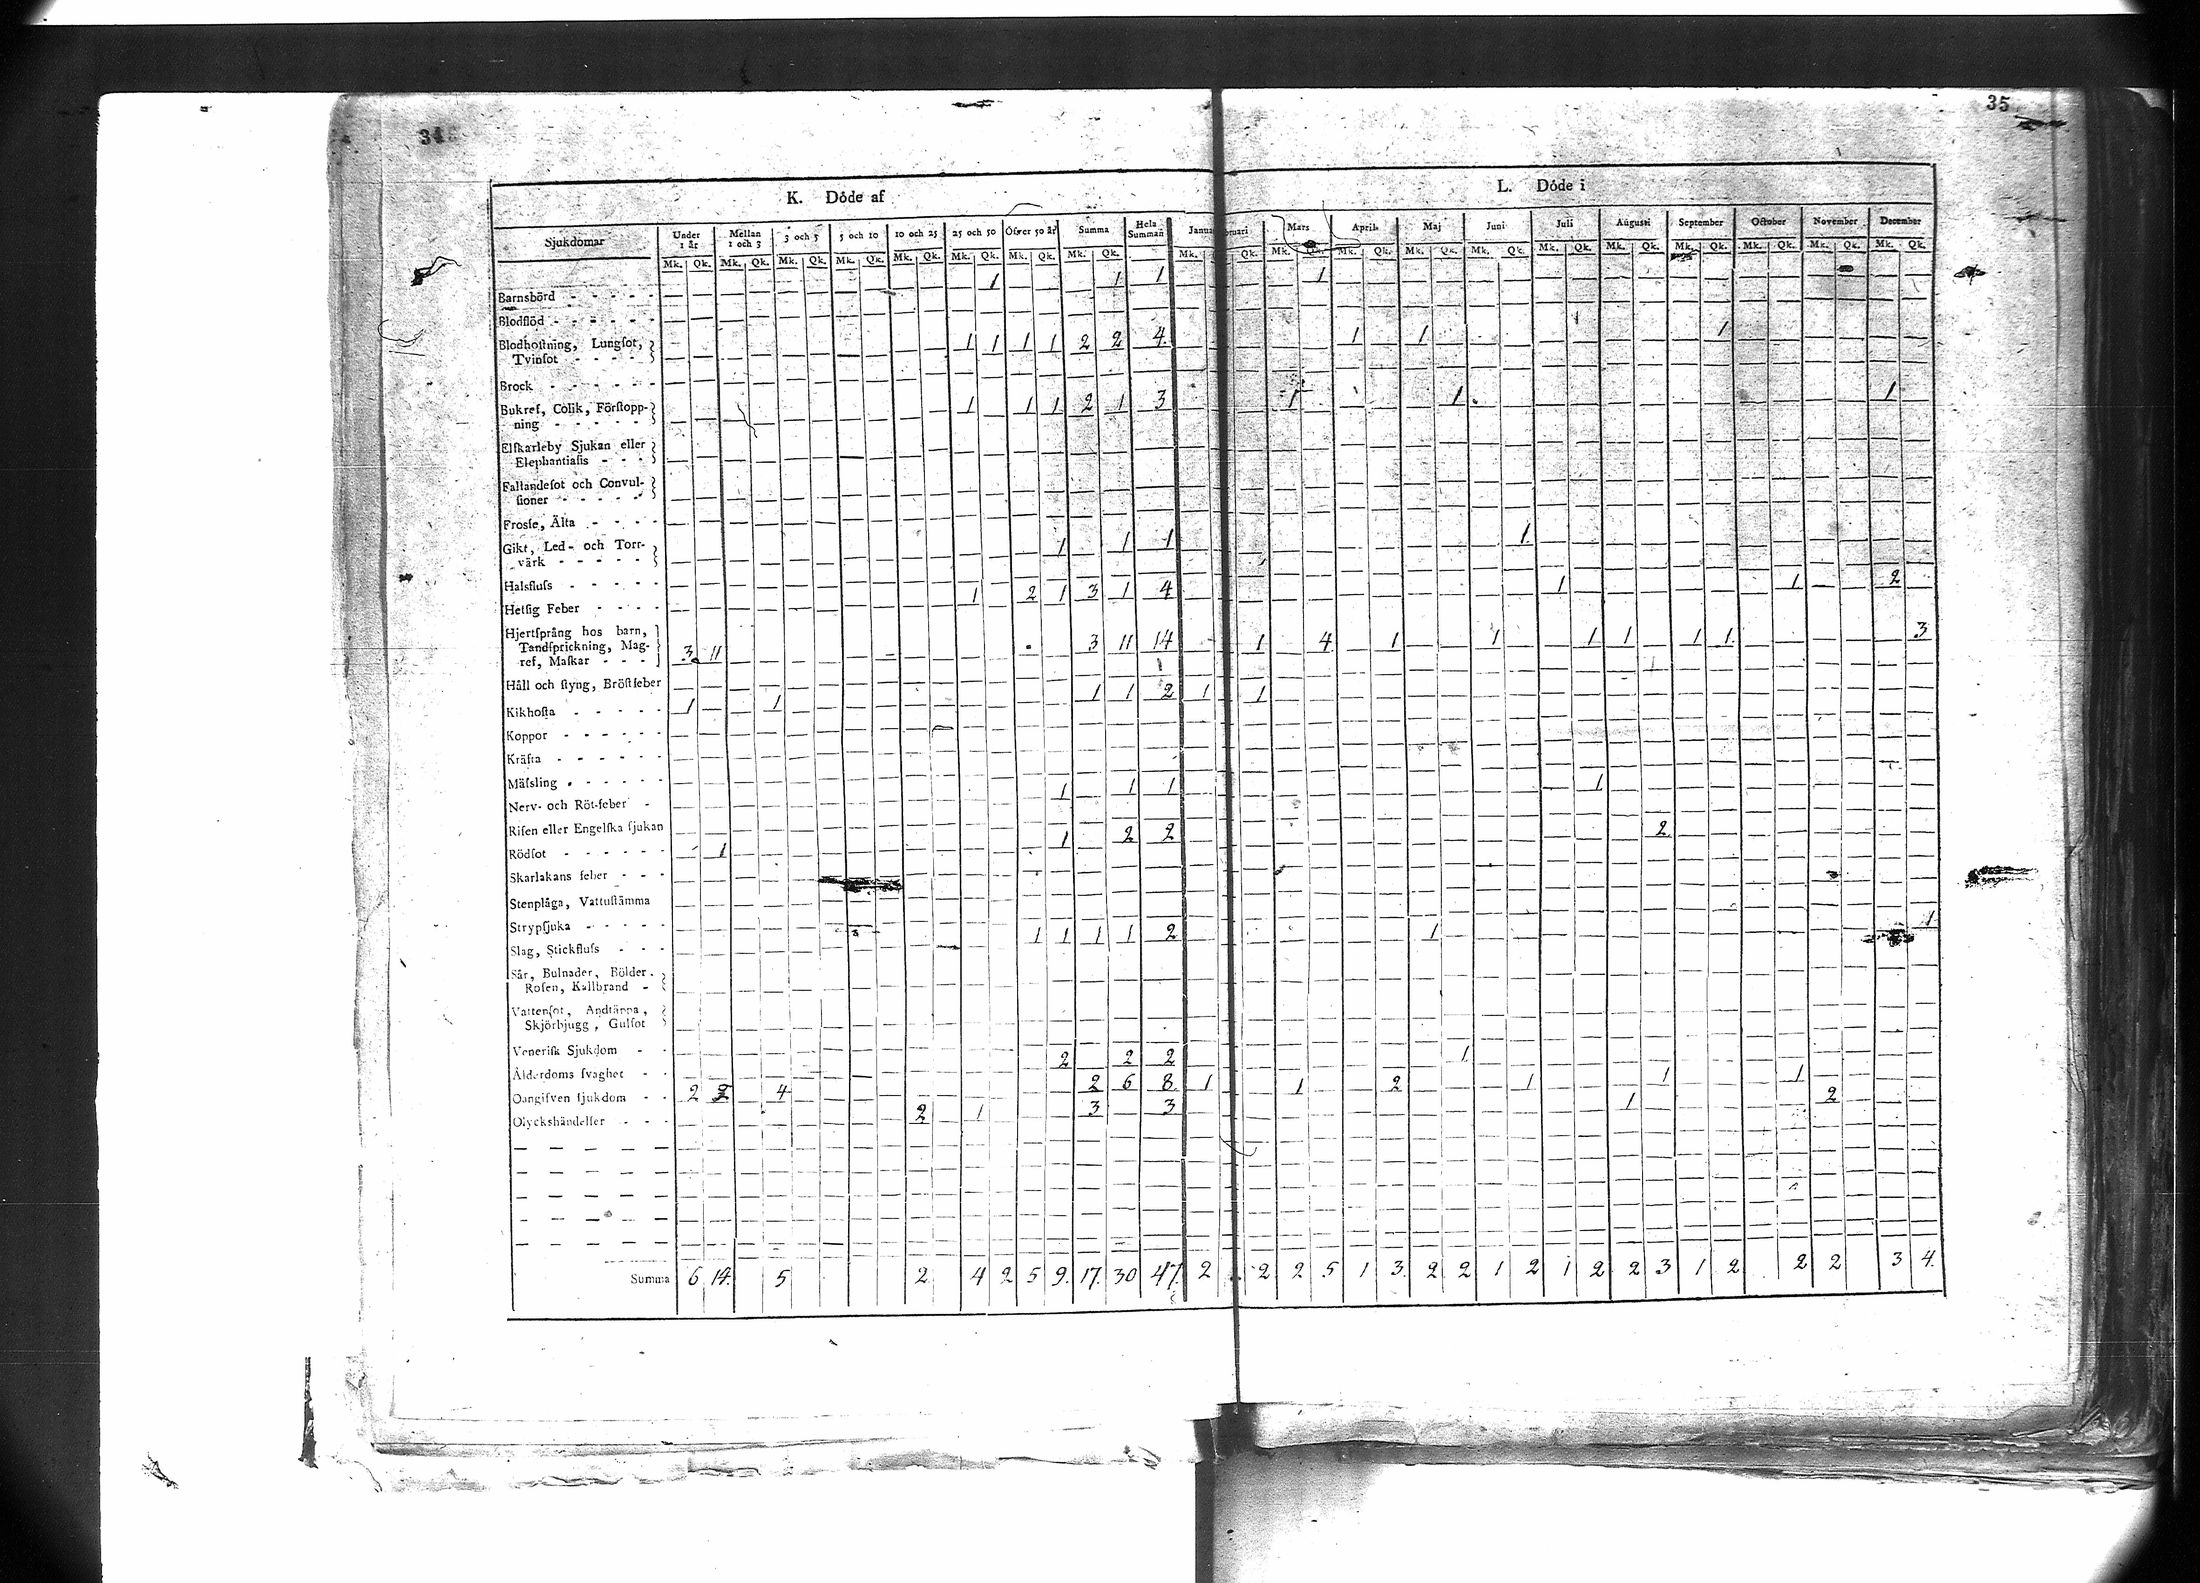 34
35
K. Döde af
L. Döde i
Sjukdomar Under 1 år Mellan 1 och 3 3 och 5 5 och 10 10 och 25 25 och 50 Öfver 50 år Summa Hela Summan Janua ruari Mars April Maj Juni Juli Augusti September October November December
Mk. Qk. Mk. Qk. Mk. Qk. Mk. Qk. Mk. Qk. Mk. Qk. Mk. Qk. Mk. Qk. Mk. Qk. Mk. Qk. Mk. Qk. Mk. Qk. Mk. Qk. Mk. Qk. Mk. Qk. Mk. Qk. Mk. Qk. Mk. Qk. Mk. Qk.
Barnsbörd - - - - - 1 1 1 1
Blodflöd - - - - - -
Blodhostning, Lungsot,
Tvinsot - - - - - 1 1 1 1 2 2 4. 1 1 1
Brock - - - - - -
Bukref, Colik, Förstopp-
ning - - - - - 1 1 1 2 1 3 1 1 1
Elfkarleby Sjukan eller
Elephantiasis - - -
Fallandesot och Convul-
sioner - - - - -
Frossa, Älta - - - -
Gikt, Led- och Torr-
värk - - - - - 1 1 1 1
Halsfluss - - - - -
Hetsig Feber - - - - 1 2 1 3 1 4 1 1 2
Hjertsprång hos barn,
Tandsprickning, Mag-
ref, Maskar - - - 3 11 3 11 14 1 4 1 1 1 1 1 1 3
Håll och styng, Bröstfeber
Kikhosta - - - - - 1 1 1 1 2 1 1
Koppor - - - - - -
Kräfta - - - - - -
Mässling - - - - -
Nerv- och Röt-feber - 1 1 1 1
Risen eller Engelska sjukan
Rödsot - - - - - - 1 1 2 2 2
Skarlakans feber - - -
Stenplåga, Vattustämma
Strypsjuka - - - - -
Slag, Stickfluss - - - 1 1 1 1 2 1 1
Sår, Bulnader, Bölder,
Rosen, Kallbrand -
Vattensot, Andtäppa,
Skjörbjugg, Gulsot
Venerisk Sjukdom - -
Ålderdoms svaghet - - 2 2 2 1 1
Oangifven sjukdom - - 2 2 4 2 6 8. 1 1 2 1 1
Olyckshändelser - - - 2 1 3 3 1 2
Summa 6 14. 5 2 4 2 5 9. 17. 30 47. 2 2 2 5 1 3. 2 2 1 2 1 2 2 3 1 2 2 2 3 4.